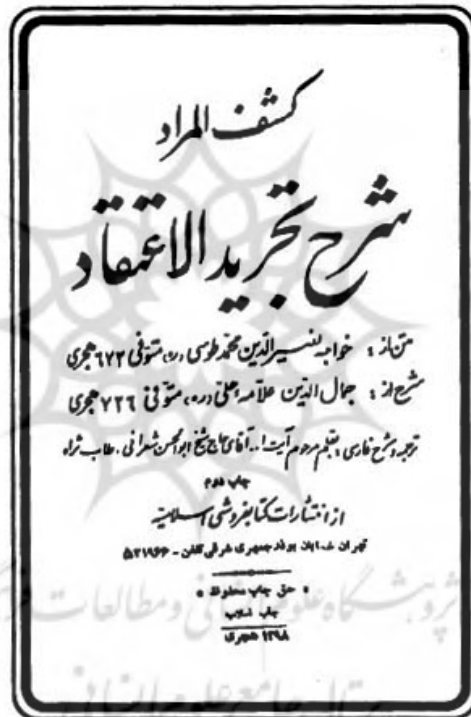 کشف المراد
شرح تجرید الاعتقاد
متن از : خواجه نصیرالدین محمد طوسی (ره) متوفی ۶۷۲ هجری
شرح از : جمال الدین علامه حلی (ره) متوفی ۷۲۶ هجری
ترجمه و شرح فارسی بقلم مرحوم آیت ا.. آقای حاج شیخ ابوالحسن شعرانی . طاب ثراه
چاپ دوم
از انتشارات کتابفروشی اسلامیه
تهران خیابان بوذرجمهری شرقی تلفن - ۵۲۱۹۶۶
* حق چاپ محفوظ *
چاپ اسلامیه
۱۳۹۸ هجری
پژوهشگاه علوم انسانی و مطالعات فرهنگ
پرتال جامع علوم انسانی